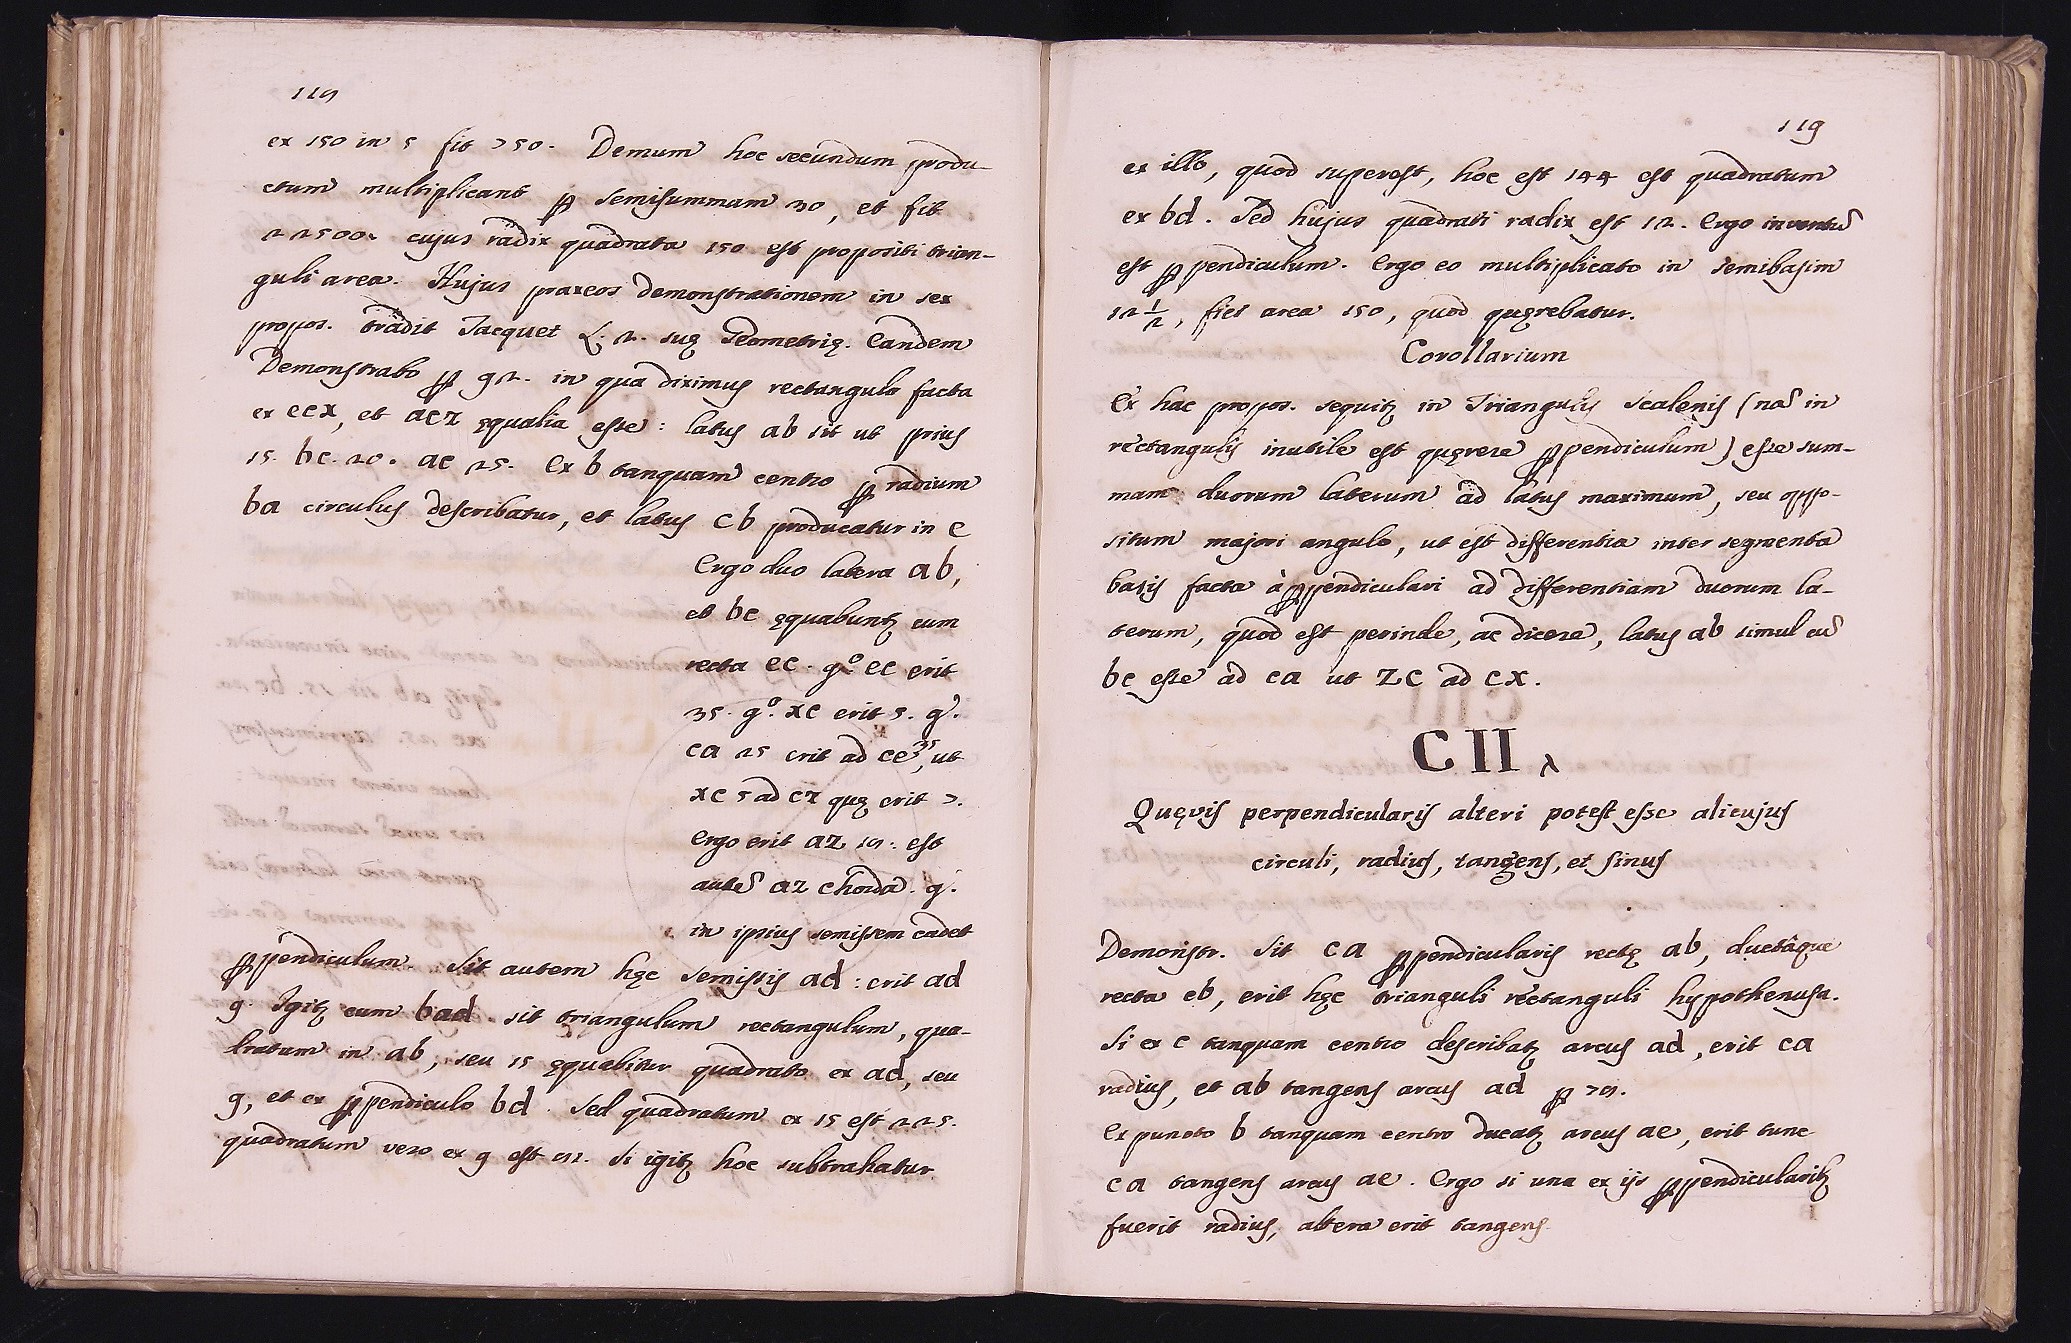 118
ex 150 in 5 fit 750. Demum hoc secundum produ-
ctum multiplicant ꝑ semisummam 30, et fit
22500. cujus radix quadrata 150 est propositi trian-
guli area. Hujus praxeos demonstrationem in sex
propos. tradit Tacquet L. 2. suę Geometrię. Eandem
Demonstrabo ꝑ 92. in qua diximus rectangula facta
ex ecx, et acz ęqualia esse: latus ab sit ut prius
15. bc. 20. ac 25. Ex b tanquam centro ꝑ radium
ba circulus describatur, et latus cb producatur in e
Ergo duo latera ab,
et bc ęquabuntꝫ cum
recta ec. gº ec erit
35. gº. xc erit 5. g'.
ca 25 erit ad ce 35, ut
xc 5 ad cz quę erit 7.
Ergo erit az 18. est
autē az chorda. g'.
in ipsius semissem cadet
ꝑpendiculum. Sit autem hęc semissis ad: erit ad
9. Igitꝫ cum bad sit triangulum rectangulum, qua-
dratum in ab, seu 15 ęquabitur quadrato ex ad, seu
9, et ex ꝑpendiculo bd. Sed quadratum ex 15 est 225.
quadratum vero ex 9 est 81. Si igitꝫ hoc subtrahatur
119
ex illo, quod superest, hoc est 144 est quadratum
ex bd. Sed hujus quadrati radix est 12. Ergo inventū
est ꝑpendiculum. Ergo eo multiplicato in semibasim
12 1/2, fiet area 150, quod quęrebatur.
Corollarium
Ex hac propos. sequitꝫ in Triangulis Scalenis (nā in
rectangulis inutile est quęrere ꝑpendiculum) esse sum-
mam duorum laterum ad latus maximum, seu oppo-
situm majori angulo, ut est differentia inter segmenta
basis facta à ꝑpendiculari ad differentiam duorum la-
terum, quod est perinde, ac dicere, latus ab simul cū
bc esse ad ca ut zc ad cx.
CII
Quęvis perpendicularis alteri potest esse alicujus
circuli, radius, tangens, et sinus
Demonstr. Sit ca ꝑpendicularis rectę ab, ductâque
recta cb, erit hęc trianguli rectanguli hypothenusa.
Si ex c tanquam centro describatꝫ arcus ad, erit ca
radius, et ab tangens arcus ad ꝑ 78.
Ex puncto b tanquam centro ducatꝫ arcus ae, erit tunc
ca tangens arcus ae. Ergo si una ex ijs ꝑpendicularibꝫ
fuerit radius, altera erit tangens.